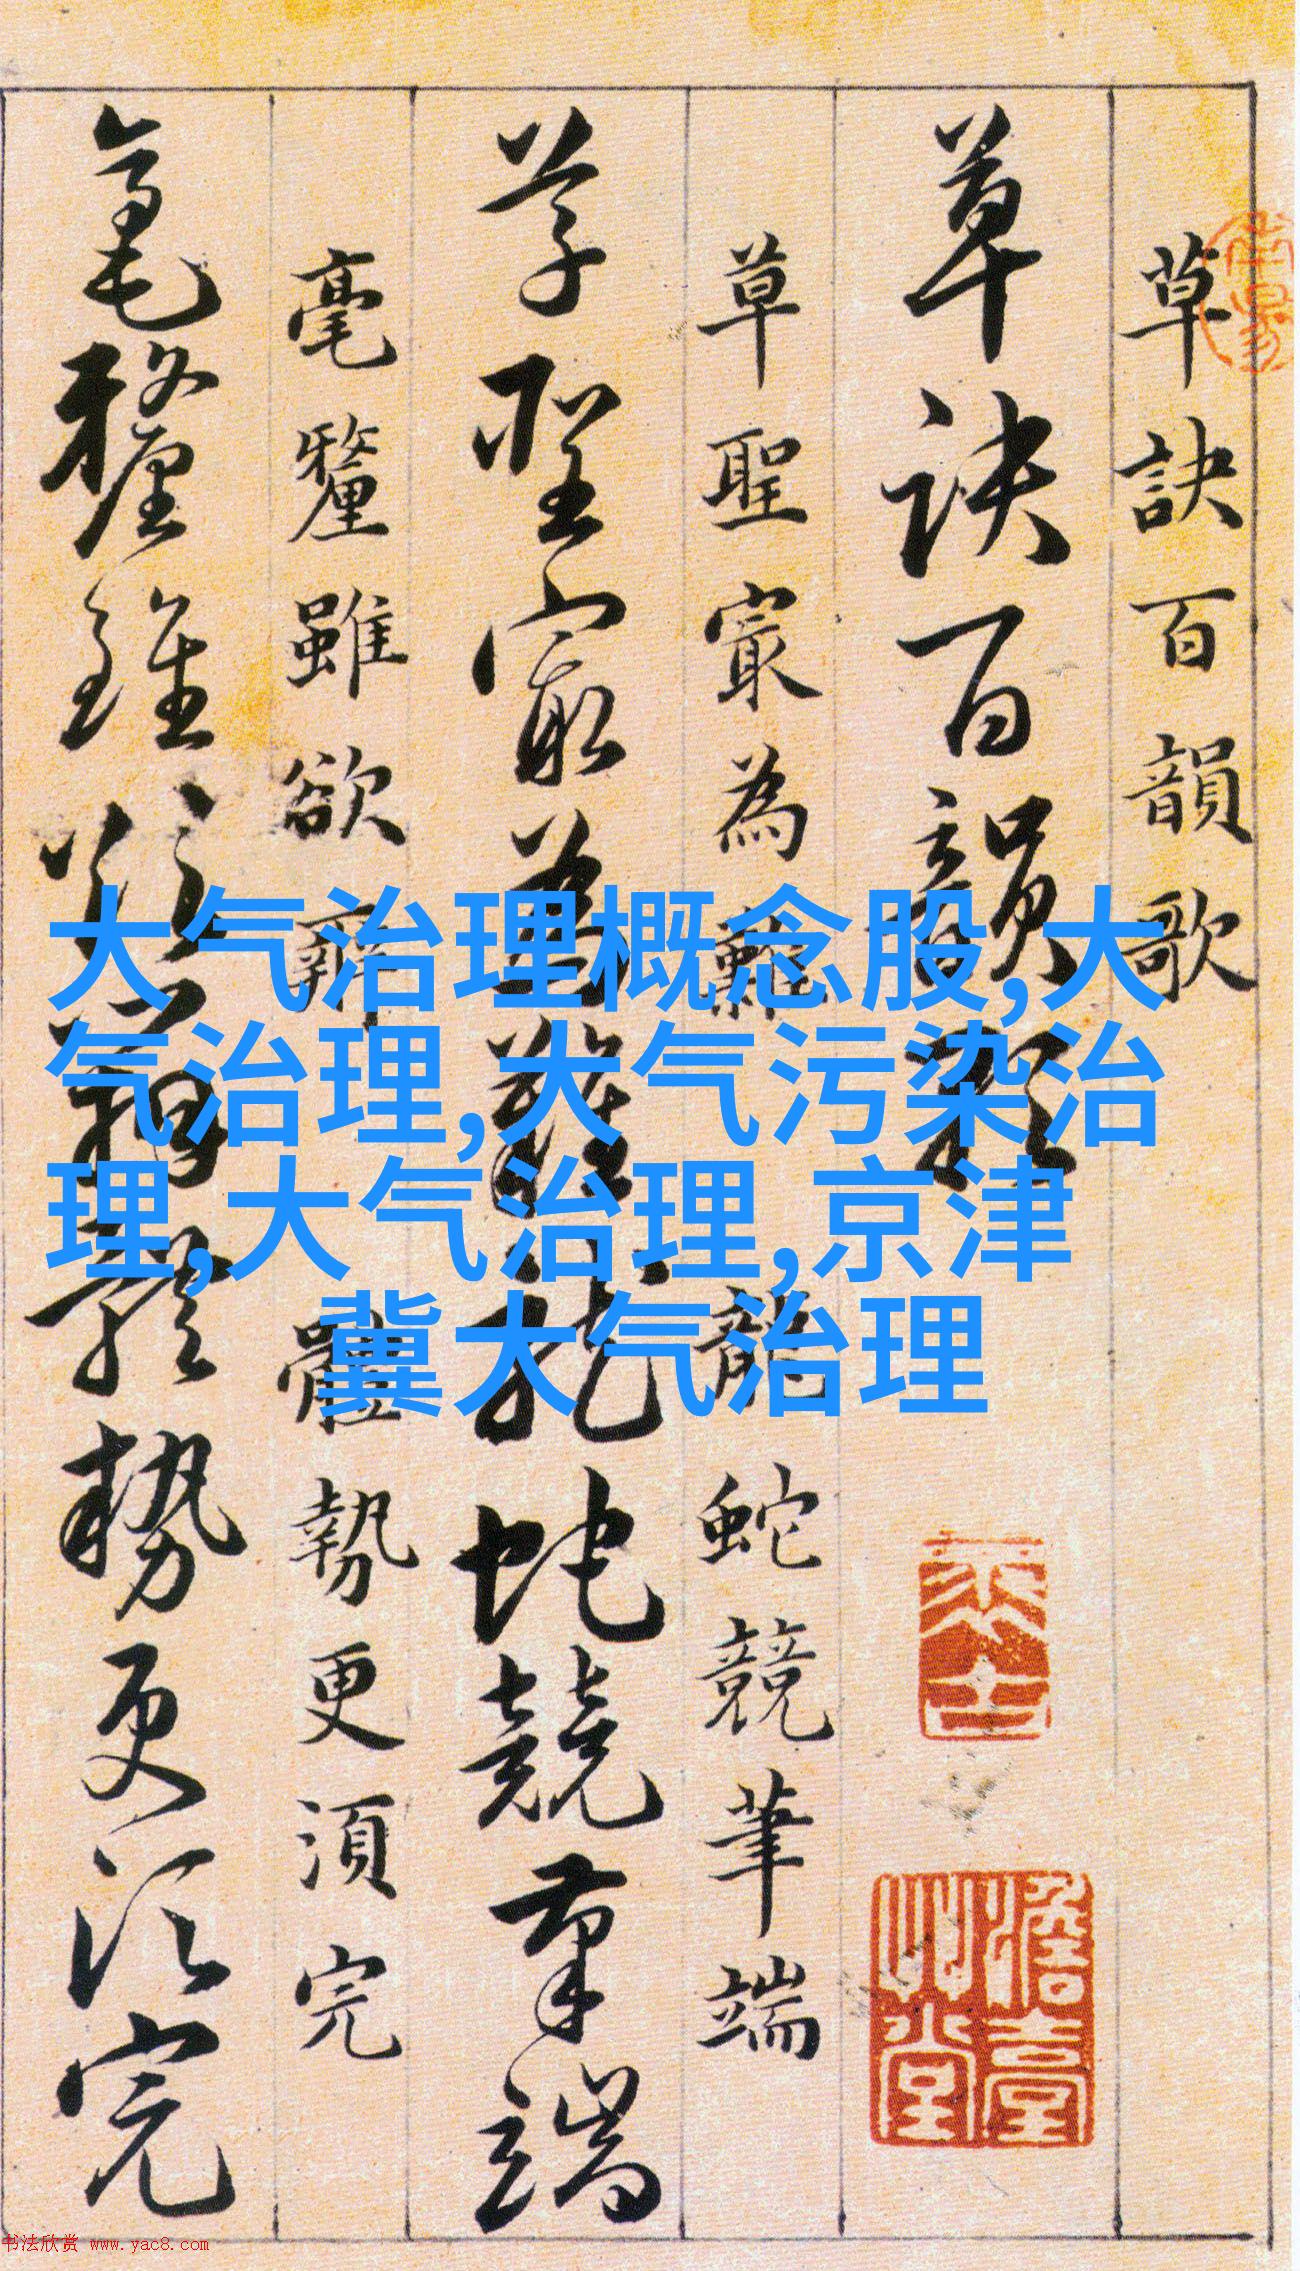 草訣百韻歌
草訣百韻歌
草聖寂為難龍蛇競筆端
草聖寂為難龍蛇競筆端
毫釐雖欲辨體勢更須完
毫釐雖欲辨體勢更須完
大气治理概念股,大
气治理,大气污染治
理,大气治理,京津
冀大气治理
书法欣赏 www.yac8.com